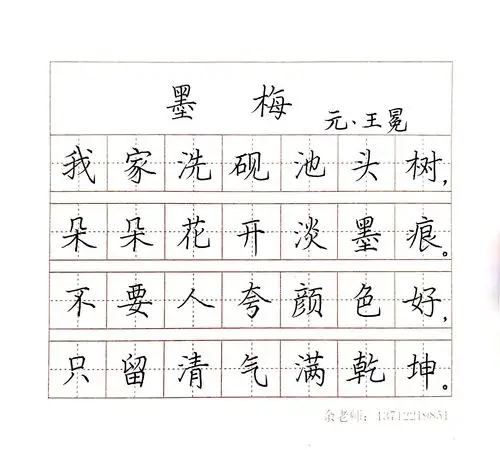 墨梅
元·王冕
我家洗砚池头树，
朵朵花开淡墨痕。
不要人夸颜色好，
只留清气满乾坤。
余老师：13712219851